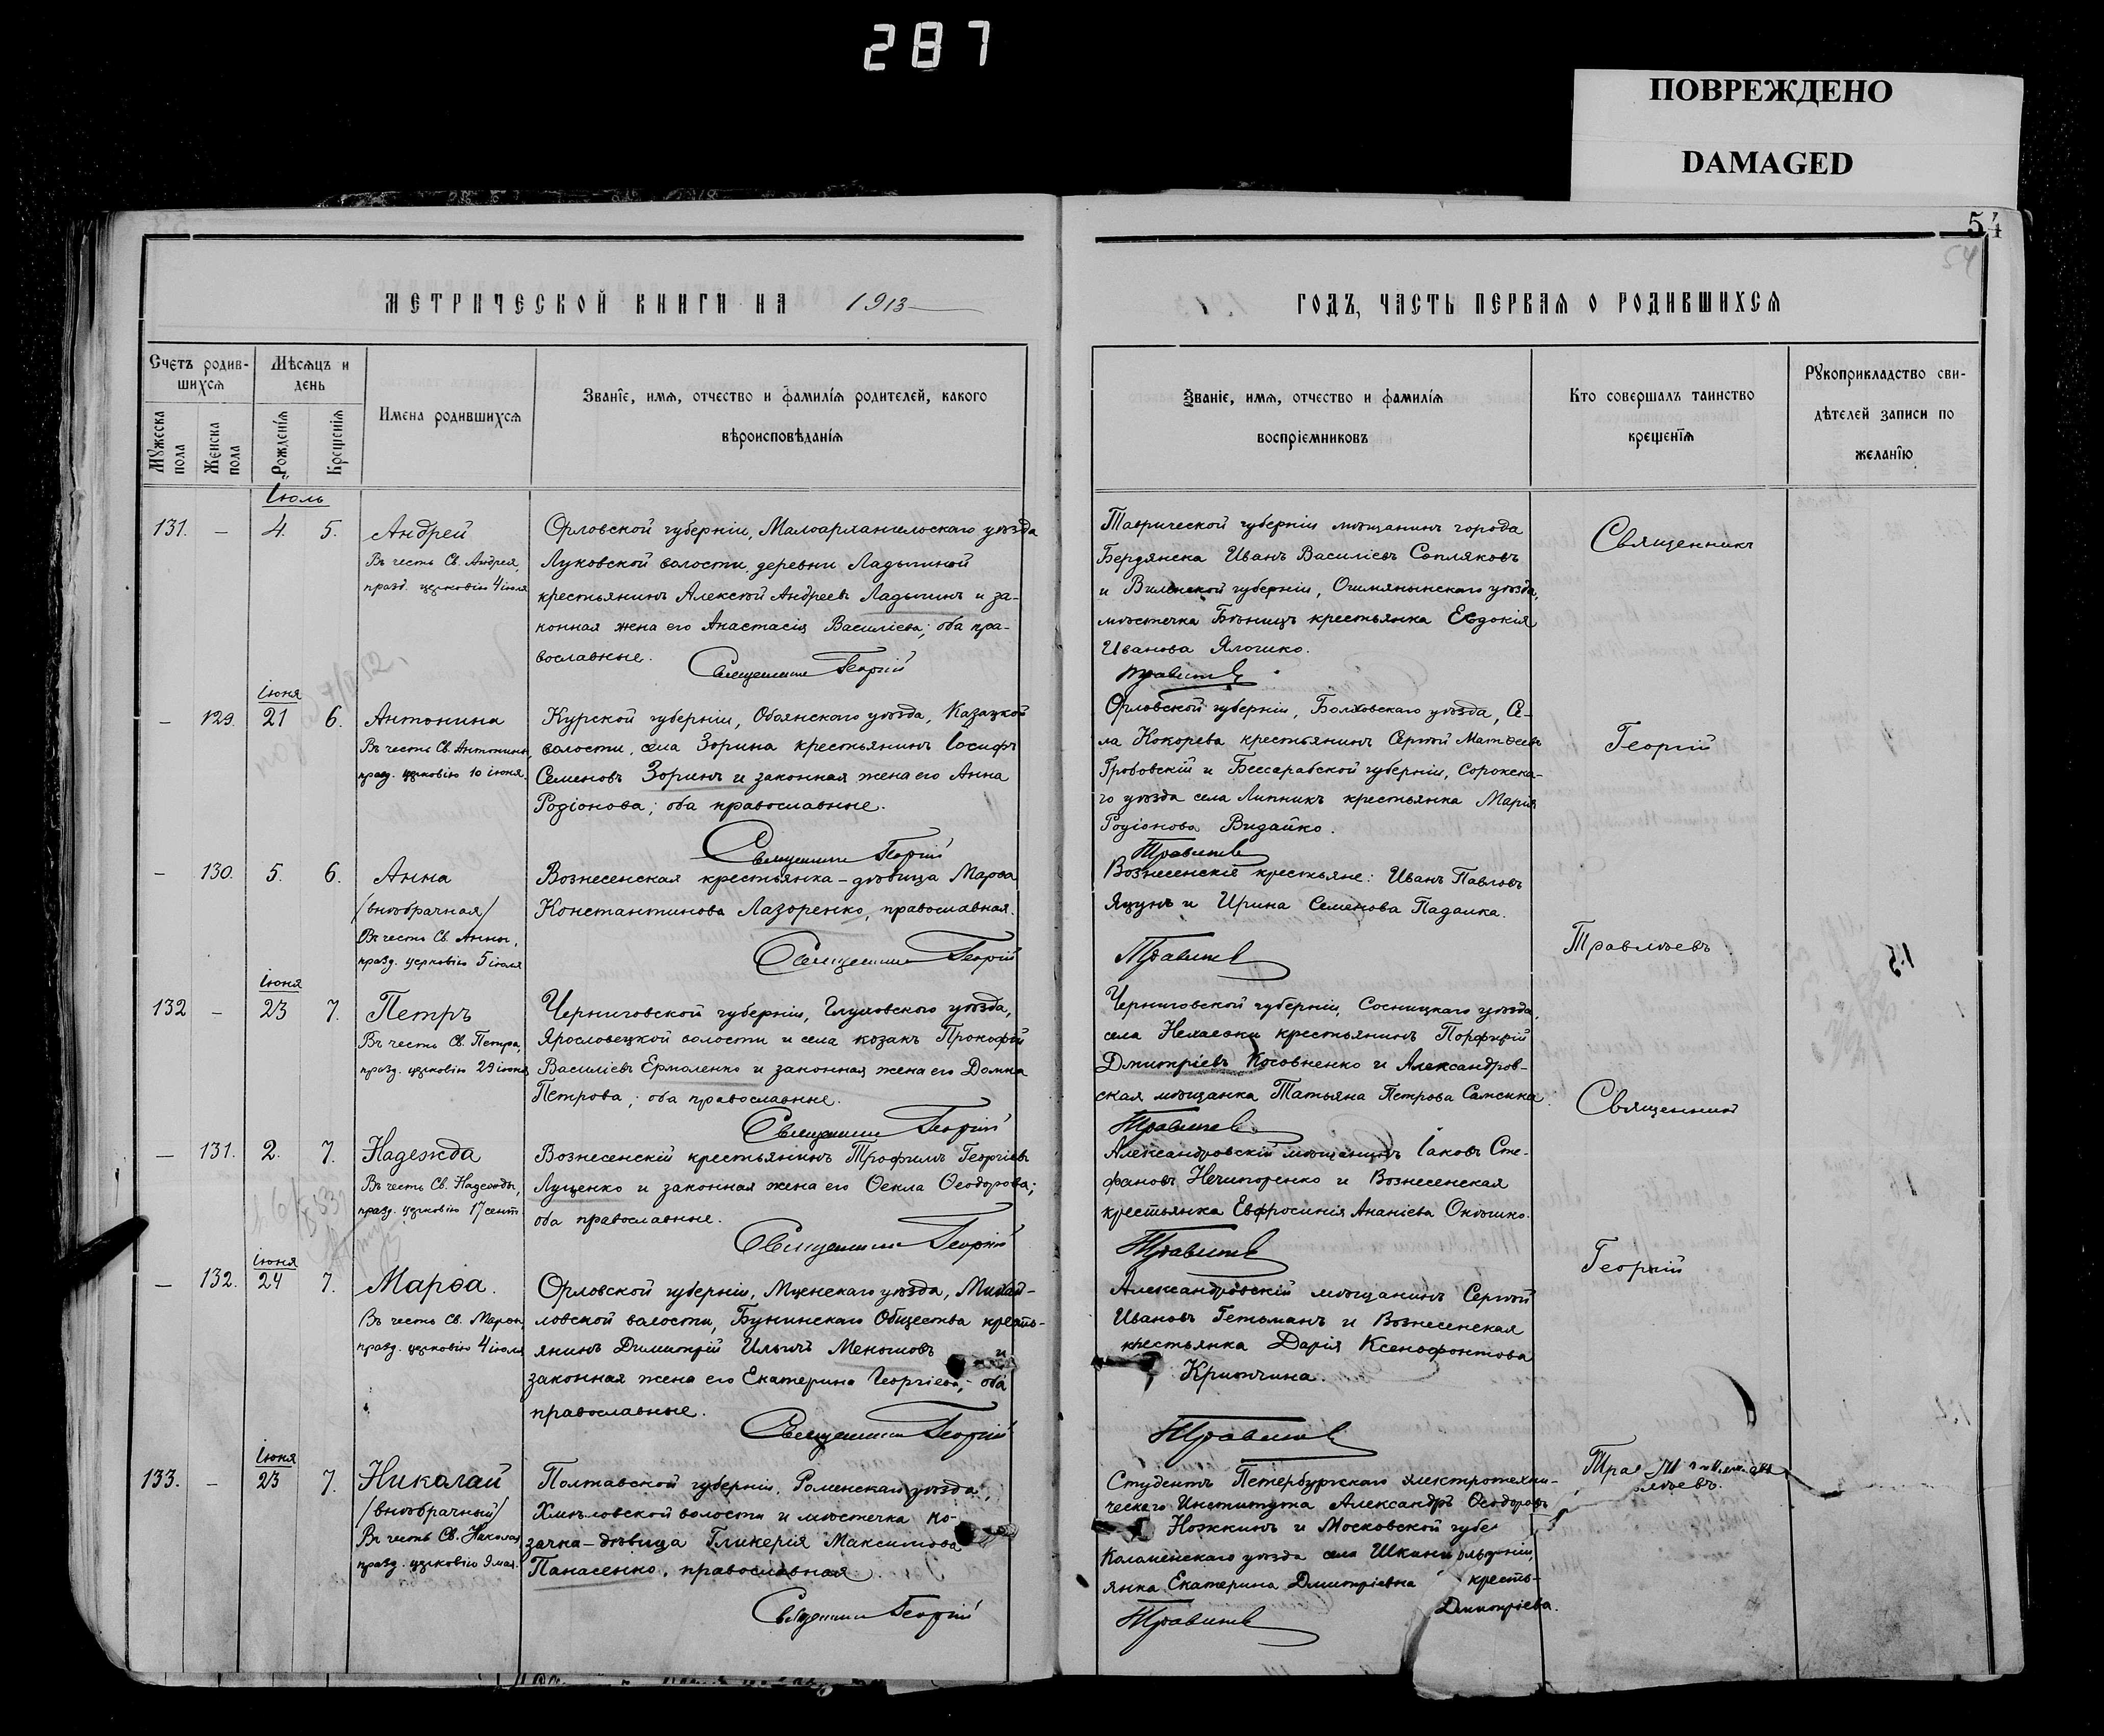 287
ПОВРЕЖДЕНО
DAMAGED
54
54
МЕТРИЧЕСКОЙ КНИГИ НА 1913
Счетъ родив-
шихся
Мѣсяцъ и
день
Мужеска пола
Женска пола
Рожденія
Крещенія
Имена родившихся
Званіе, имя, отчество и фамилія родителей, какого
вѣроисповѣданія
Іюль
131. — 4. 5. Андрей
Въ честь Св. Андрея,
празд. церковію 4 іюля
Орловской губерніи, Малоархангельскаго уѣзда
Луковской волости, деревни Ладыгиной
крестьянинъ Алексѣй Андреевъ Ладыгинъ и за-
конная жена его Анастасія Василіева; оба пра-
вославные.
Священникъ Георгій
Іюня
— 129. 21 6. Антонина
Въ честь Св. Антонины,
празд. церковію 10 іюня.
Курской губерніи, Обоянскаго уѣзда, Казацкой
волости, села Зорина крестьянинъ Іосифъ
Семеновъ Зоринъ и законная жена его Анна
Родіонова; оба православные.
Священникъ Георгій
— 130. 5. 6. Анна
/внѣбрачная/
Въ честь Св. Анны,
празд. церковію 5 іюля
Вознесенская крестьянка-дѣвица Марѳа
Константинова Лазоренко, православная.
Священникъ Георгій
Іюня
132 — 23 7. Петръ
Въ честь Св. Петра,
празд. церковію 29 іюня
Черниговской губерніи, Глуховского уѣзда,
Ярославецкой волости и села козакъ Прокофій
Василіевъ Ермоленко и законная жена его Домна
Петрова; оба православные.
Священникъ Георгій
— 131. 2. 7. Надежда
Въ честь Св. Надежды,
празд. церковію 17 сент.
Вознесенскій крестьянинъ Трофимъ Георгіевъ
Луценко и законная жена его Ѳекла Ѳеодорова;
оба православные.
Священникъ Георгій
Іюня
— 132. 24 7. Марѳа.
Въ честь Св. Марѳы,
празд. церковію 4 іюля
Орловской губерніи, Мценскаго уѣзда, Михай-
ловской волости, Бунинскаго Общества кресть-
янинъ Димитрій Ильичъ Меньшовъ и
законная жена его Екатерина Георгіева; оба
православные.
Священникъ Георгій
Іюня
133. — 23 7. Николай
/внѣбрачный/
Въ честь Св. Николая
празд. церковію 9 мая.
Полтавской губерніи, Роменскаго уѣзда,
Хмѣловской волости и мѣстечка ко-
зачка-дѣвица Гликерія Максимова
Панасенко, православная.
Священникъ Георгій
ГОДЪ, ЧАСТЬ ПЕРВАЯ О РОДИВШИХСЯ
Званіе, имя, отчество и фамилія
воспріемниковъ
Кто совершалъ таинство
крещенія
Рукоприкладство сви-
дѣтелей записи по
желанію
Таврической губерніи мѣщанинъ города
Бердянска Иванъ Василіевъ Сопляковъ
и Виленской губерніи, Ошмянынскаго уѣзда,
мѣстечка Бѣницъ крестьянка Евдокія
Иванова Ялошко.
Травлѣевъ
Орловской губерніи, Болховскаго уѣзда, Се-
ла Кокорева крестьянинъ Сергѣй Матѳеевъ
Грововскій и Бессарабской губерніи, Сорокска-
го уѣзда села Липникъ крестьянка Марія
Родіонова Видайко.
Травлѣевъ
Вознесенскіе крестьяне: Иванъ Павловъ
Яцунъ и Ирина Семенова Падалка.
Травлѣевъ
Черниговской губерніи, Сосницкаго уѣзда,
села Нехаевки крестьянинъ Порфирій
Дмитріевъ Косовненко и Александров-
ская мѣщанка Татьяна Петрова
Травлѣевъ
Александровскій мѣщанинъ Іаковъ Сте-
фановъ Нечипоренко и Вознесенская
крестьянка Евфросинія Ананіева
Травлѣевъ
Александровскій мѣщанинъ Сергѣй
Ивановъ Гетьманъ и Вознесенская
крестьянка Дарія Ксенофонтова
Криничина.
Травлѣевъ
Студентъ Петербургскаго электротехни-
ческаго Института Александръ Ѳеодоровъ
Ножкинъ и Московской губе
Коломенскаго уѣзда села
янка Екатерина Дмитріевна кресть-
Дмитріева.
Травлѣевъ
Священникъ
Георгій
Травлѣевъ
Священникъ
Георгій